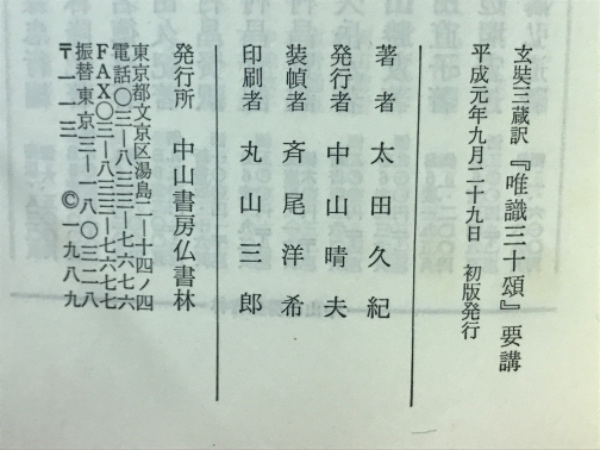 玄奘三蔵訳『唯識三十頌』要講
平成元年九月二十九日 初版発行
著者 太田久紀
発行者 中山晴夫
装幀者 斉尾洋希
印刷者 丸山三郎
発行所 中山書房仏書林
東京都文京区湯島二—十四ノ四
電話〇三—八三三—七六七六
FAX〇三—八三三—七六七七
振替東京三—一八〇三二八
〒一一三 ©一九八九